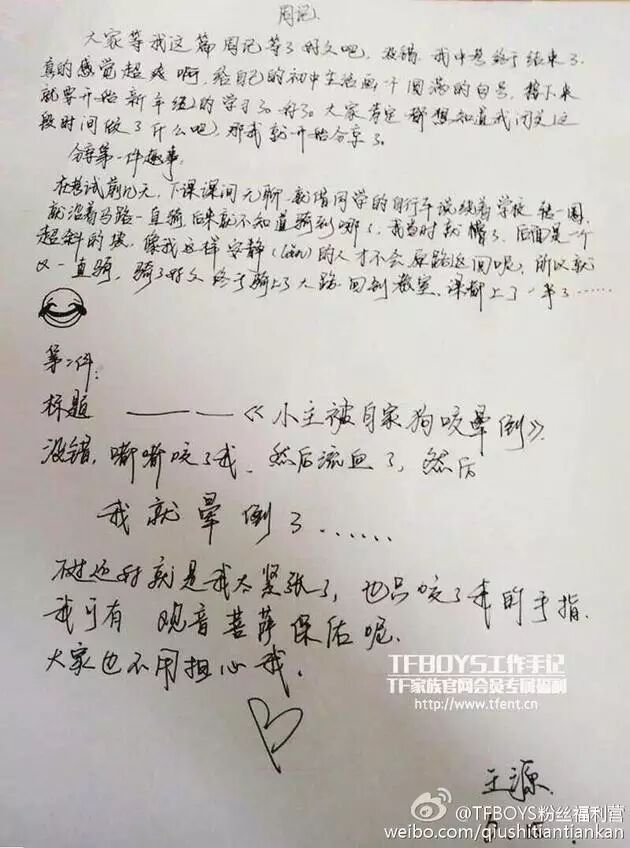 周记
大家等我这篇周记等了好久吧,没错,我中考终于结束了,
真的感觉超爽啊,给自己的初中生活画一个圆满的句号,接下来
就要开始新年级的学习了。好了。大家肯定都想知道我闭关这
段时间做了什么吧,那我就开始分享了。
分享第一件趣事:
在考试前几天,下课课间无聊,就借同学的自行车说绕着学校骑一圈,
就沿着马路一直骑,后来就不知道骑到哪了,我当时就懵了,后面是一个
超斜的坡,像我这样安静(lǎn)的人才不会原路返回呢,所以就
又一直骑,骑了好久终于骑上了大路回到教室,课都上了一半了……
第二件:
标题 ————《小主被自家狗咬晕倒》
没错,嘶嘶咬了我,然后流血了,然后
我就晕倒了……
不过还好就是我太紧张了,也只咬了我的手指.
我可有观音菩萨保佑呢.
大家也不用担心我.
王源
TFBOYS工作手记
TF家族官网会员专属福利
http://www.tfent.cn
@TFBOYS粉丝福利营
weibo.com/qiushitiantiankan